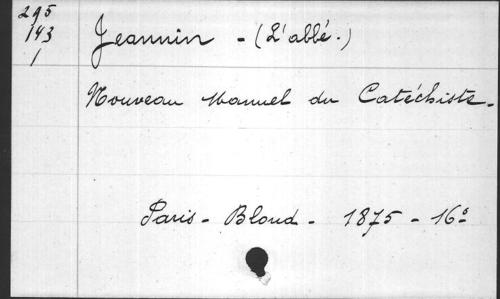 295
143
1
Jeannin - (L'abbé.)
Nouveau Manuel du Catéchiste.
Paris - Bloud - 1875 - 16º